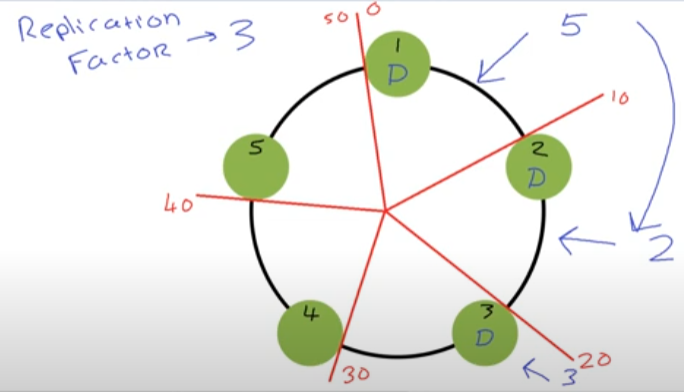 Replication
Factor → 3
50
0
5
1
D
10
5
2
D
40
2
4
3
D
30
3
20